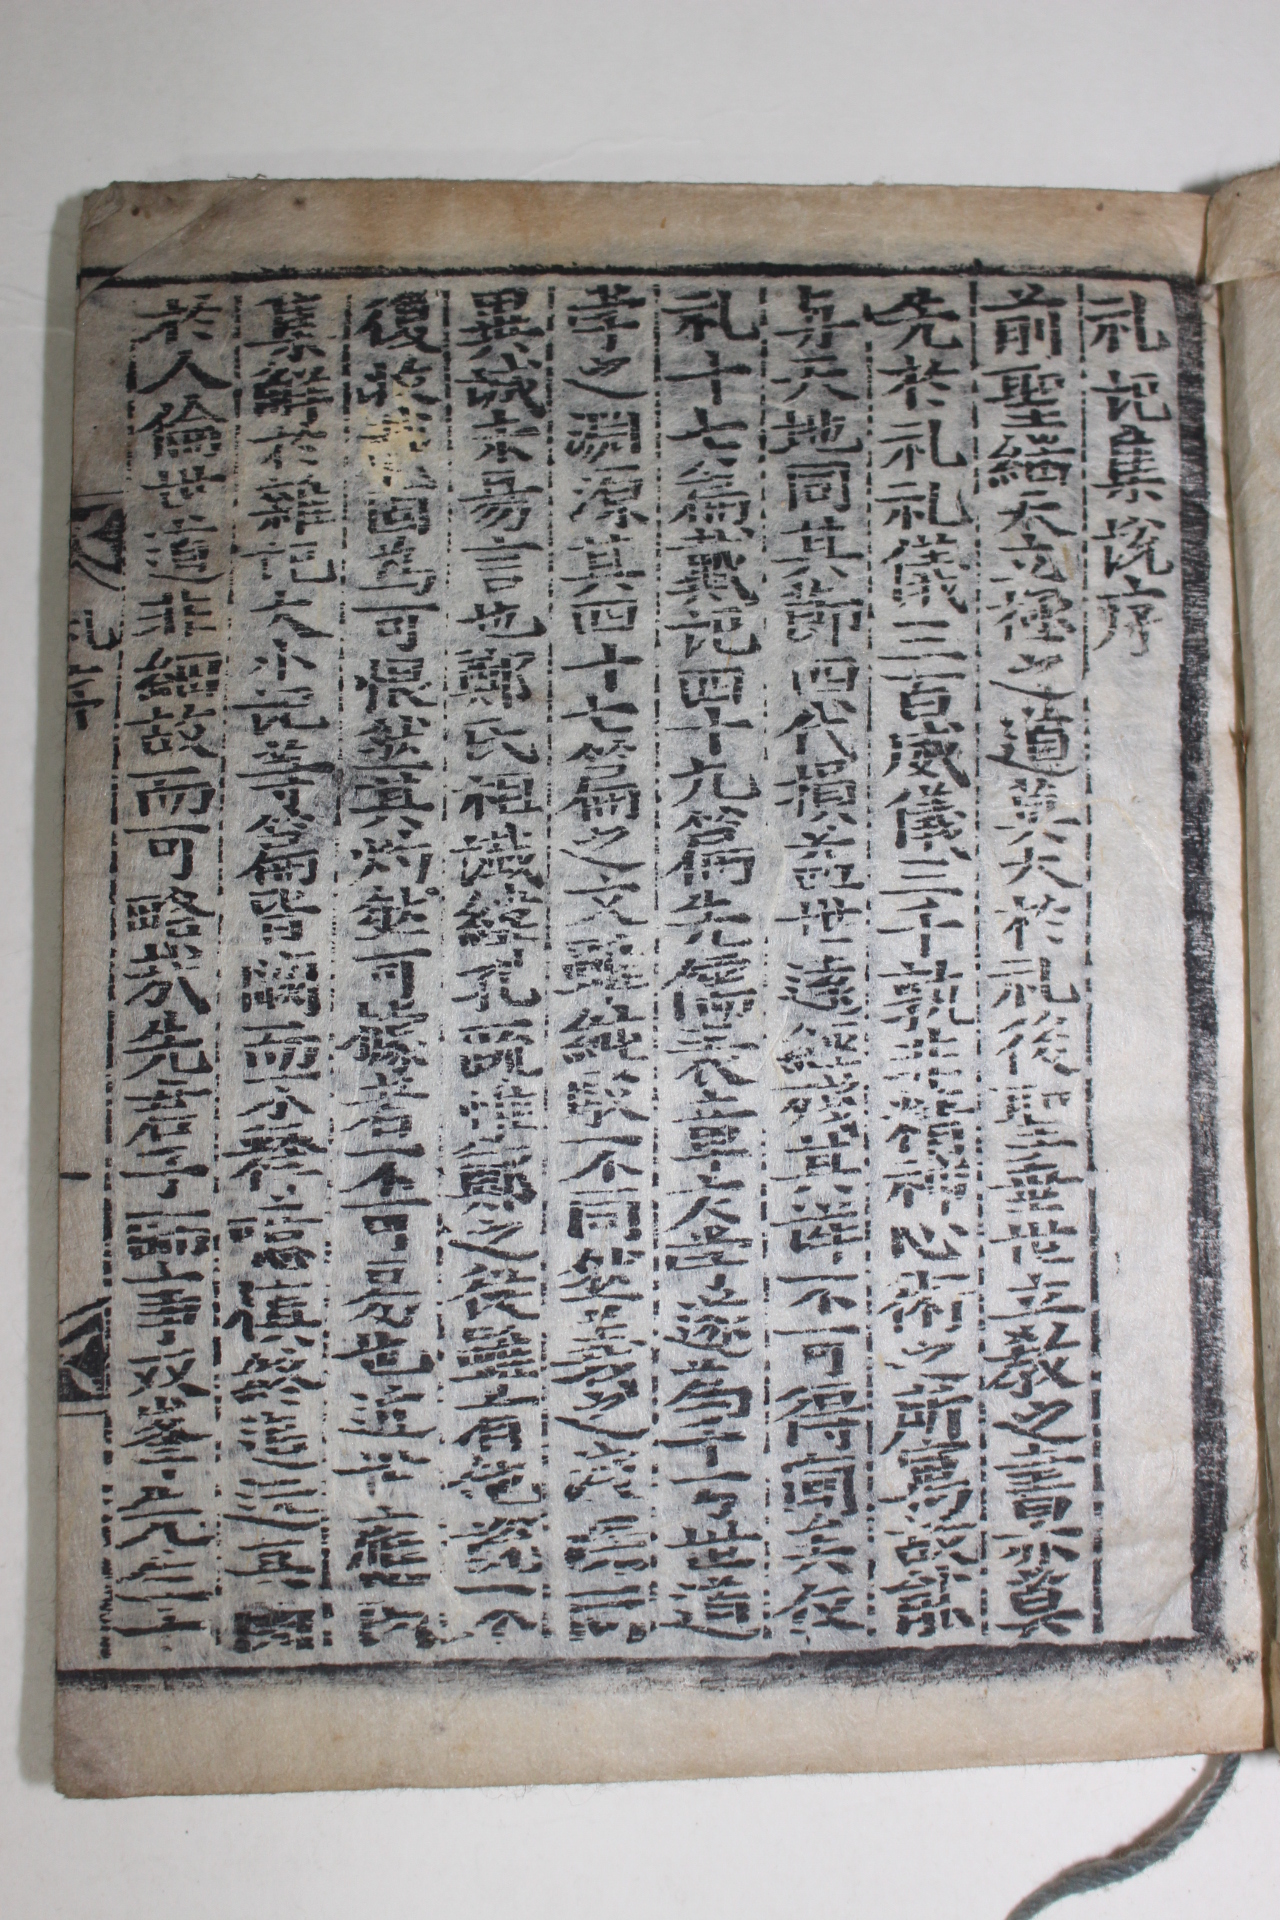 礼記集説序
前聖繼天立極之道莫大於礼後聖垂世立教之書亦莫
先於礼礼儀三百威儀三千孰非精神心術之所寓故能
与天地同其節四代損益世遠經殘其詳不可得聞矣仪
礼十七篇戴記四十九篇先儒表章大學遂為千万世道
学之渊源其四十七篇之文雖純駁不同然義之浅深同
異誠未易言也鄭氏祖讖緯孔疏惟鄭之從雖有他說不
復收載固為可恨然其灼然可據者不可易也近世應氏
集解於雜記大小記等篇皆闕而不釋噫慎終追遠其関
於人倫世道非細故而可略哉先君子師事双峯先生十
礼序
一